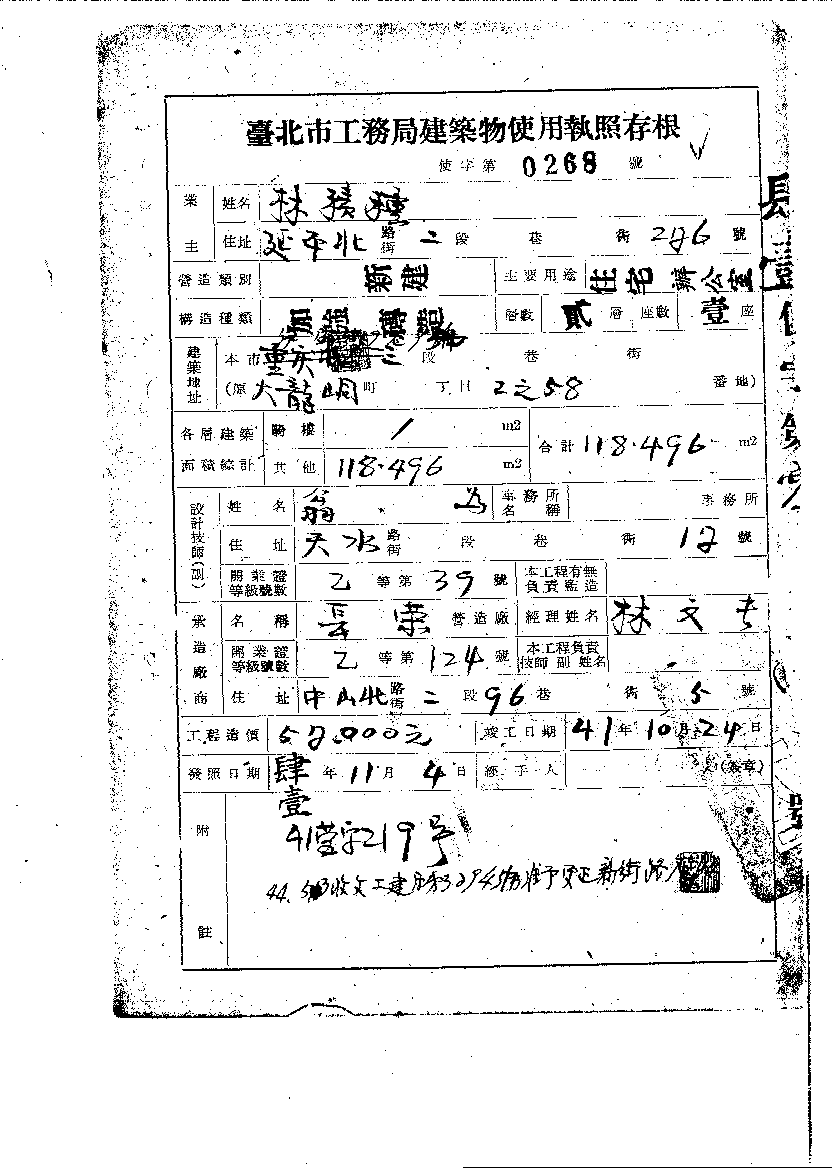 臺北市工務局建築物使用執照存根
使字第 0268 號
業主 姓名 林積穗
住址 延平北 路街 二 段 巷 街 276 號
營造類別 新建 主要用途 住宅 辦公室
構造種類 加強磚造 層數 貳 層 座數 壹 座
建築地址 本市 重庆 三 段 巷 街
(原 大龍峒 町 丁目 2之58 番地)
各層建築面積總計 騎樓 / m2 合計 118.496 m2
其他 118.496 m2
設計技師(副) 姓名 翁 為 事務所名稱 事務所
住址 天水 路街 段 巷 街 17 號
開業證等級號數 乙 等第 39 號 本工程有無負責監造
承造廠商 名稱 長榮 營造廠 經理姓名 林文
開業證等級號數 乙 等第 124 號 本工程負責技師副姓名
住址 中山北 路街 二 段 96 巷 街 5 號
工程造價 57,000元 竣工日期 41年10月24日
發照日期 肆壹 年 11 月 4 日 經手人 (簽章)
附註
41營字219号